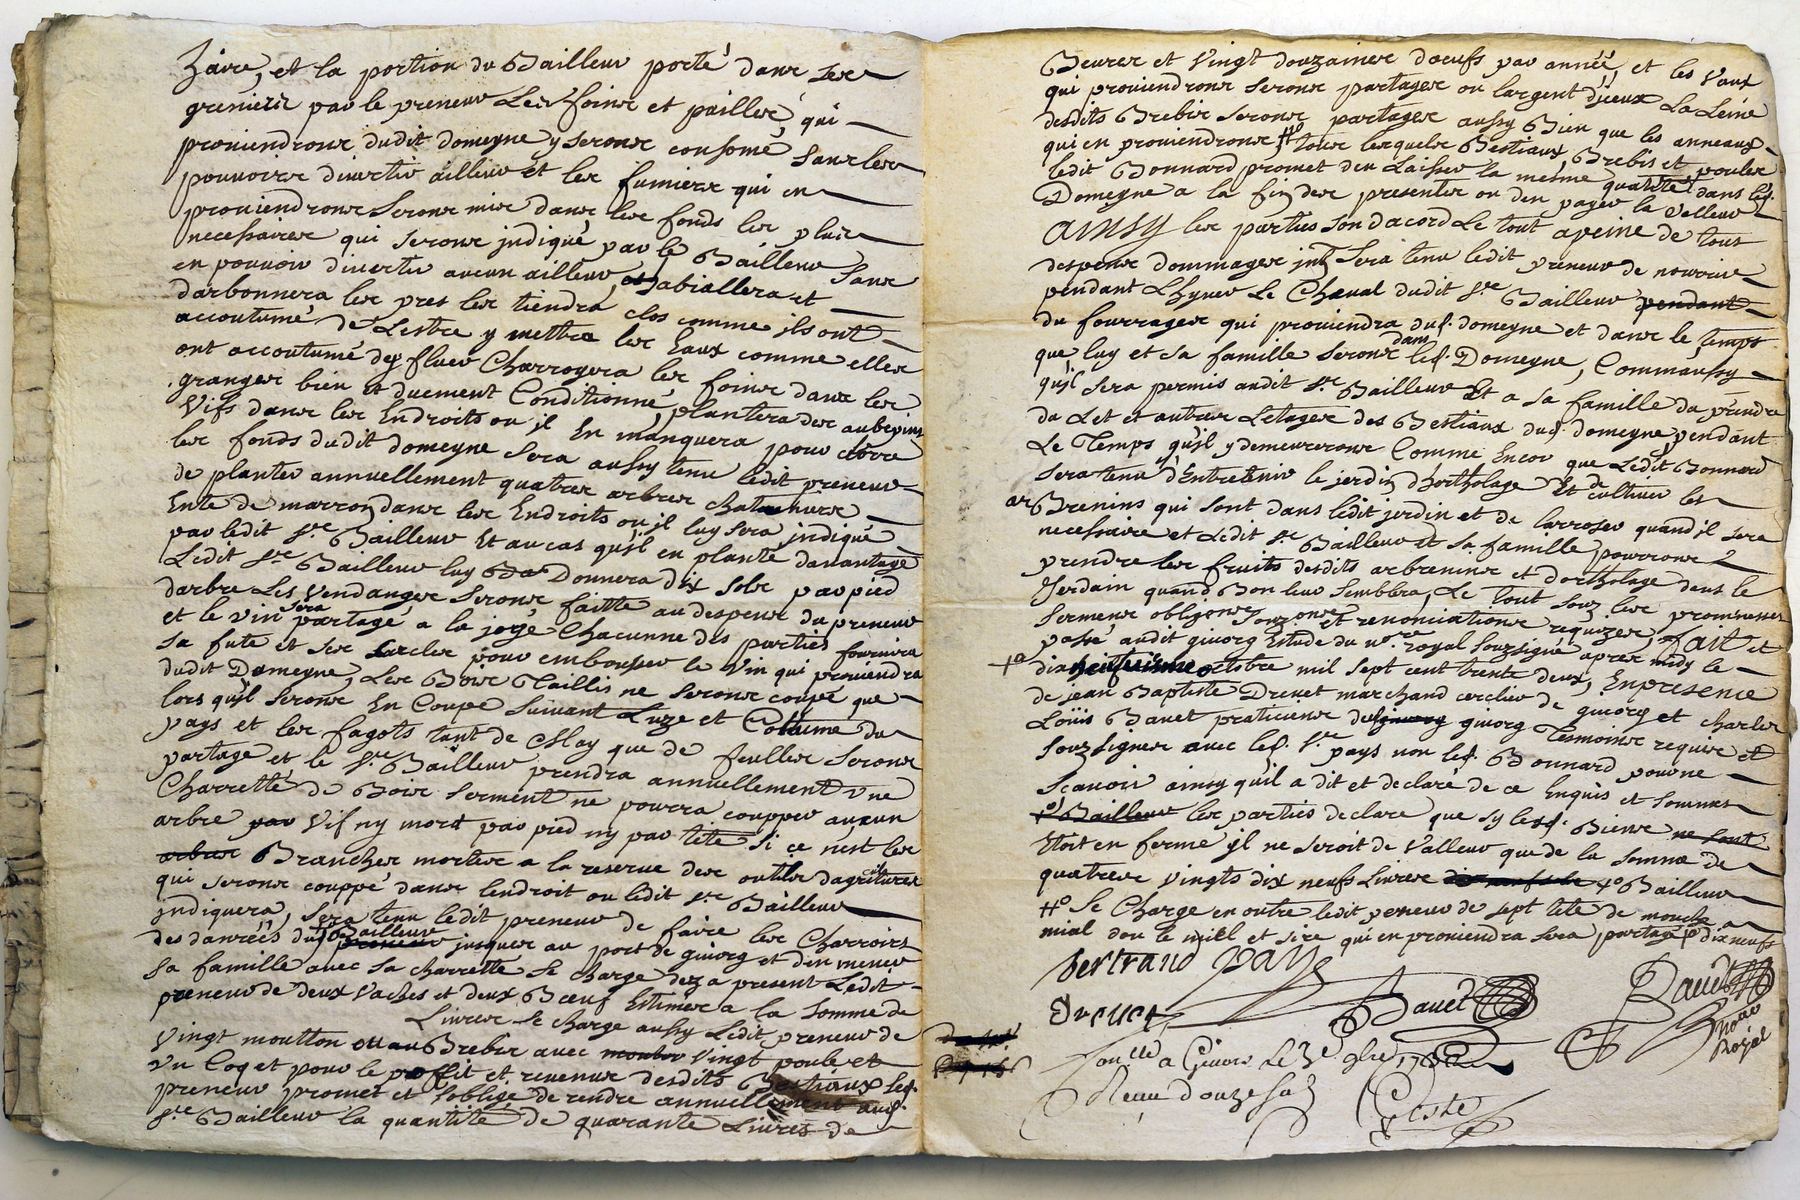 Zaire, et la portion du Bailleur porté dans ses
greniers par le preneur Les foins et pailles, qui
proviendrons dudit domeyne y serons consomé sans les
pouvoirs divertir ailleur et les fumiers qui en
proviendrons Serons mis dans les fonds les plus
necessaires qui serons jndiqué par le Bailleur Sans
en pouvoir divertir aucun ailleur, habiallera et
darbonnera les pres les tiendra clos comme ils ont
accoutumé de Lestre y mettra les Eaux comme elles
ont accoutumé dey fluer Charroyera les foins dans les
granges bien et duement Conditionné, plantera des aubepins
Vifs dans les Endroits ou il En manquera pour clore
les fonds dudit domeyne sera aussy tenu ledit preneur
de planter annuellement quatres arbres chataniers
Ente de marron dans les Endroits ou il luy sera jndiqué
par ledit Sr. Bailleur Et au cas qu'il en plante davantage
Ledit Sr. Bailleur luy Donnera dix sols par pied
darbre Les Vendanges Serons faitte au despens du preneur
et le vin sera partagé a la joye Chacunne des parties fournira
sa fute et ses cercles pour embousser le Vin qui proviendra
dudit Domeyne, Les Bois Taillis ne serons coupé que
lors qu'il serons En Coupe Suivant Luze et Cottume du
pays et les fagots tant de May que de feulles Serons
partage et le Sr. Bailleur prendra annuellement une
Charretté de Bois serment ne pourra coupper aucun
arbre par Vif ny mort par pied ny par tete Si ce n'est les
arbres Branches mortes a la reserve des outils dagricultures
qui serons couppé dans lendroit ou ledit Sr. Bailleur
jndiquera, Sera tenu ledit preneur de faire les Charroirs
des danrées dud. Bailleur preneur jusques au port de givors et den mener
sa famille avec sa charrette Se charge dez a present Ledit
preneur de deux Vaches et deux Bœuf Estimés a la Somme de
Livres Se charge aussy Ledit preneur de
Vingt moutton ou Brebis avec Vingt poule et
un Coq et pour le proffit et revenus desdits Bestiaux led.
preneur promet et soblige de rendre annuellement aud.
Sr. Bailleur la quantité de quarante Livres de
Beurre et Vingt douzaines dœufs par année, et les Vaux
qui proviendrons Serons partages ou largent d'jceux La Leine
desdits Brebis Serons partages aussy Bien que les anneaux
qui en proviendrons # tous lesquels Bestiaux, Brebis et poules
ledit Bonnard promet den Laisser la méme quatité dans led.
Domeyne a la fin des presentes ou den payer la Valleur
AINSY les parties son dacord Le tout a peine de tous
despens dommages jnts Sera tenu ledit preneur de nourrire
pendant Lhyver Le Cheval dudit Sr. Bailleur pendant
du fourrages qui proviendra dud. domeyne et dans le temps
que luy et sa famille Serons dans led. Domeyne, Comm'aussy
qu'jl Sera permis audit Sr. Bailleur Et a sa famille da prendre
du Let et autres Letages des Bestiaux dud. domeyne, pendant
Le Temps qu'jl y demeurerons Comme Encor que Ledit Bonnard
sera tenu d'Entretenir le jardin d'hortholage Et de cultiver les
ar Brenins qui sont dans ledit jerdin et de larroser quand jl sera
necessaire et Ledit Sr. Bailleur et sa famille pourrons
prendre les fruits desdits arbrenins et dortholage dans le
Jerdain quand Bon leur Semblera, Le tout Souz les promesses
Sermens obligons Souzons et renonciations requizes, Fait et
passé audit givors Estude du nore. royal Souzsigné apres midy le
dixneufvieme octobre mil sept cent trente deux, En presence
de jean Baptiste Drevet marchand cerclier de givors et charles
Loüis Bavet praticiens de givorg givorg Tesmoins requis et
Souzsignes avec led. Sr. pays non led. Bonnard pour ne
Scavoir ainsy qu'il a dit et declaré de ce Enquis et Sommes
Bailleur les parties declare que sy lesd. Biens ne sont
Etoit en ferme jl ne seroit de Valleur que de la somme de
quatres vingts dix neufs Livres Bailleur
# Se Charge en outre ledit preneur de sept tete de mouche a
mial don le miell et sire qui en proviendra sera partagé dixneufs
Bertrand Pays
Drevet Bavet
Bavet
Nore Royal
Conllé a Givors Le 3e 9bre 1732
Receu douze sols